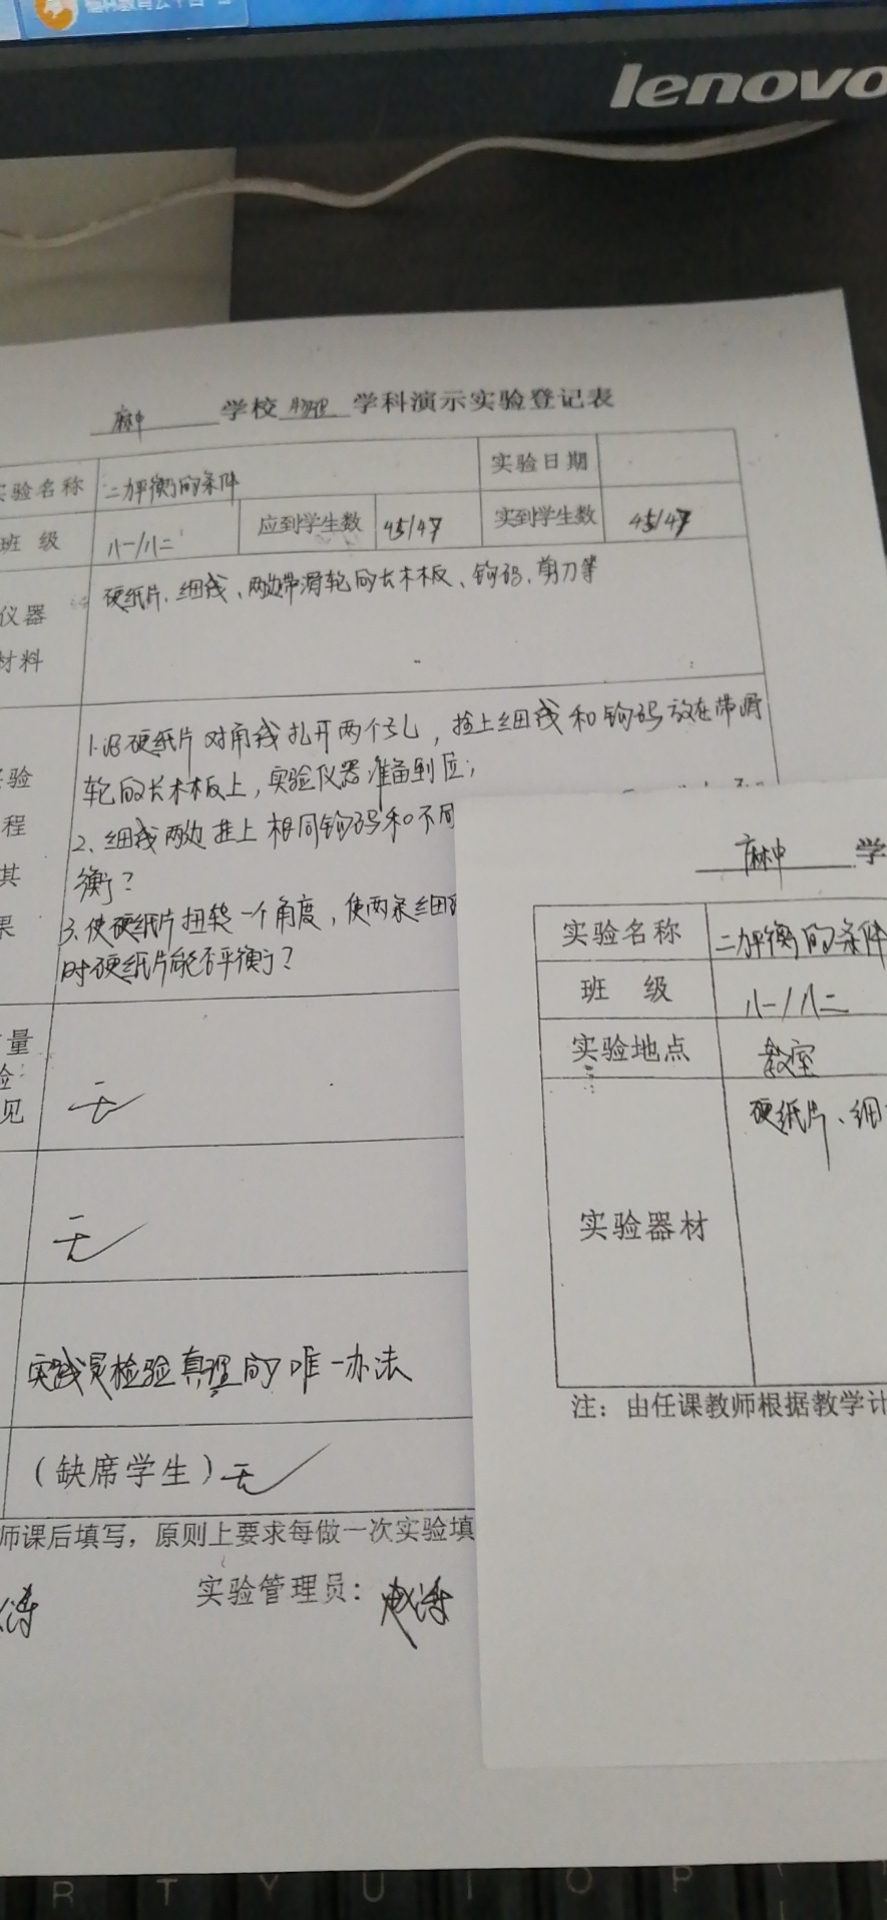 lenovo
麻中 学校 物理 学科演示实验登记表
实验名称 二力平衡的条件 实验日期
班 级 八一/八二 应到学生数 45/47 实到学生数 45/47
仪器
材料
硬纸片、细线、两边带滑轮的长木板、钩码、剪刀等
验
程
其
果
1.沿硬纸片对角线扎开两个孔，拴上细线和钩码放在带滑
轮的长木板上，实验仪器准备到位；
2、细线两边挂上相同钩码和不同
衡？
3.使硬纸片扭转一个角度，使两条细
时硬纸片能否平衡？
量
验
见
无
无
实践是检验真理的唯一办法
（缺席学生）无
师课后填写，原则上要求每做一次实验填
实验管理员：
涛
麻中 学
实验名称 二力平衡的条件
班 级 八一/八二
实验地点 教室
实验器材 硬纸片、细
注：由任课教师根据教学计
R T Y U I O P